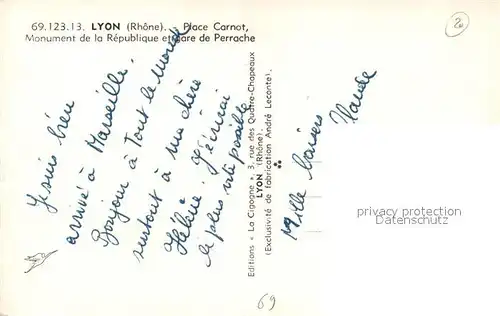 69.123.13. LYON (Rhône). - Place Carnot,
Monument de la République et gare de Perrache
2
Je suis bien
arrivé à Marseille.
Bonjour à Tout le monde
surtout à ma chère
Hélène. J'écrirai
le plus vite possible
Editions « La Cigogne », 3, rue des Quatre-Chapeaux
LYON (Rhône)
(Exclusivité de fabrication André Leconte)
Mille baisers
privacy protection
by
AnsichtskartenCenter
69